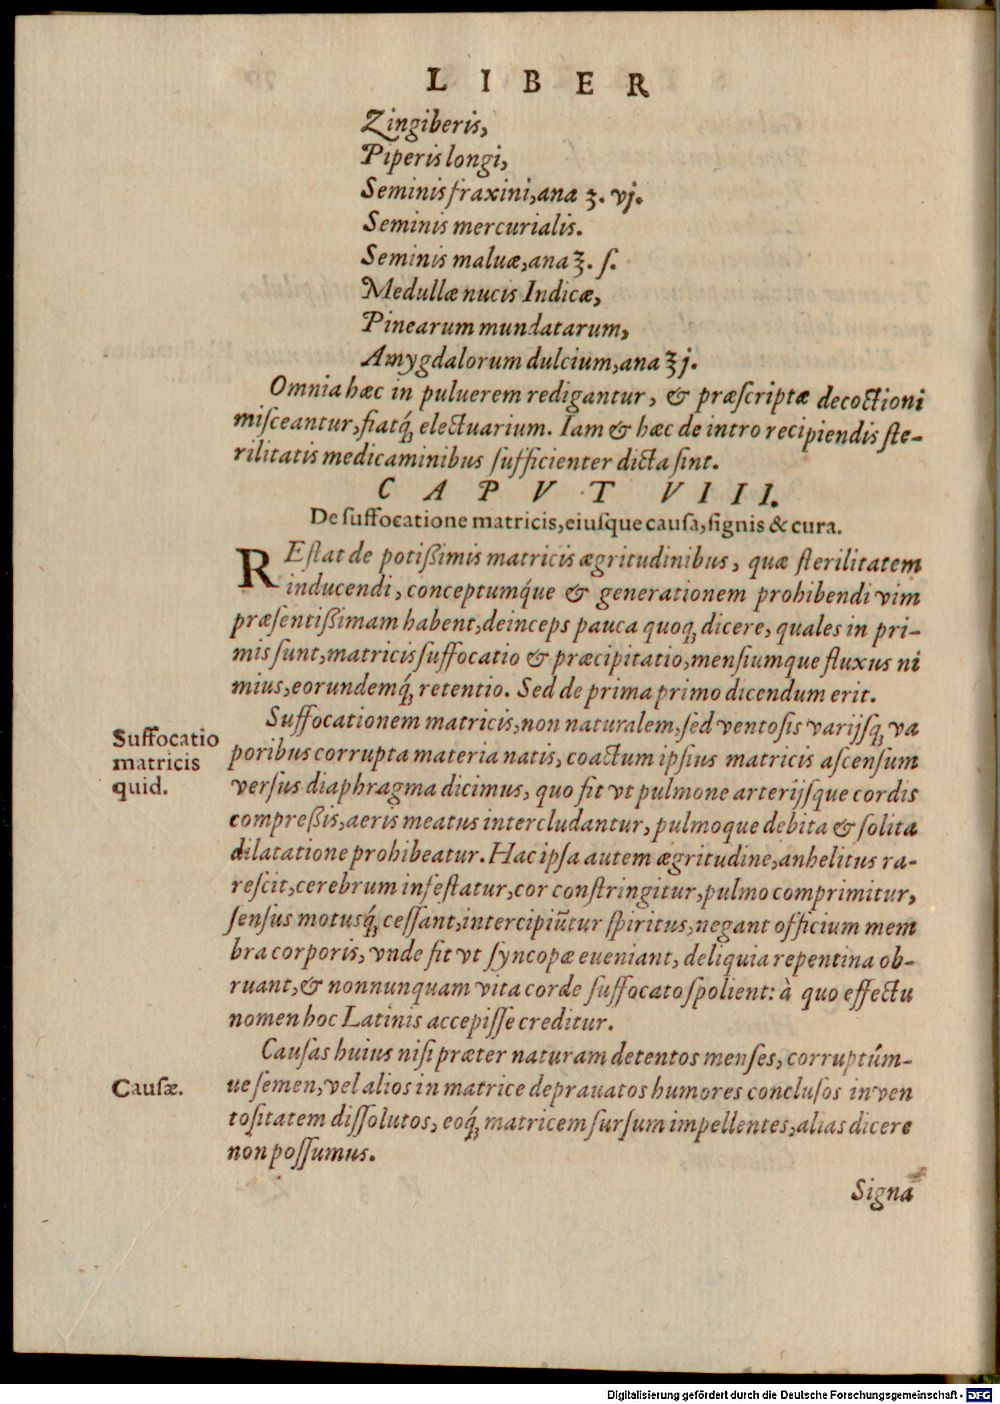 LIBER
Zingiberis,
Piperis longi,
Seminis fraxini, ana ʒ. vj.
Seminis mercurialis.
Seminis maluæ, ana ℥. ſ.
Medullæ nucis Indicæ,
Pinearum mundatarum,
Amygdalorum dulcium, ana ℥ j.
Omnia hæc in puluerem redigantur, & præſcriptæ decoctioni
miſceantur, fiatq́ꝫ electuarium. Iam & hæc de intro recipiendis ſte-
rilitatis medicaminibus ſufficienter dicta ſint.
CAPVT VIII.
De ſuffocatione matricis, eiuſque cauſa, ſignis & cura.
REſtat de potißimis matricis ægritudinibus, quæ ſterilitatem
inducendi, conceptumq́ue & generationem prohibendi vim
præſentißimam habent, deinceps pauca quoqꝫ dicere, quales in pri-
mis ſunt, matricis ſuffocatio & præcipitatio, menſiumque fluxus ni
mius, eorundemq́ꝫ retentio. Sed de prima primo dicendum erit.
Suffocatio
matricis
quid.
Suffocationem matricis, non naturalem, ſed ventoſis varijſqꝫ va
poribus corrupta materia natis, coactum ipſius matricis aſcenſum
verſus diaphragma dicimus, quo fit vt pulmone arterijſque cordis
compreßis, aeris meatus intercludantur, pulmoque debita & ſolita
dilatatione prohibeatur. Hac ipſa autem ægritudine, anhelitus ra-
reſcit, cerebrum infeſtatur, cor conſtringitur, pulmo comprimitur,
ſenſus motusq́ꝫ ceſſant, intercipiūtur ſpiritus, negant officium mem
bra corporis, vnde fit vt ſyncopæ eueniant, deliquia repentina ob-
ruant, & nonnunquam vita corde ſuffocato ſpolient: à quo effectu
nomen hoc Latinis accepiſſe creditur.
Cauſæ.
Cauſas huius niſi præter naturam detentos menſes, corruptúm-
ue ſemen, vel alios in matrice deprauatos humores concluſos in ven
toſitatem diſſolutos, eoq́ꝫ matricem ſurſum impellentes, alias dicere
non poſſumus.
Signa
Digitalisierung gefördert durch die Deutsche Forschungsgemeinschaft - DFG